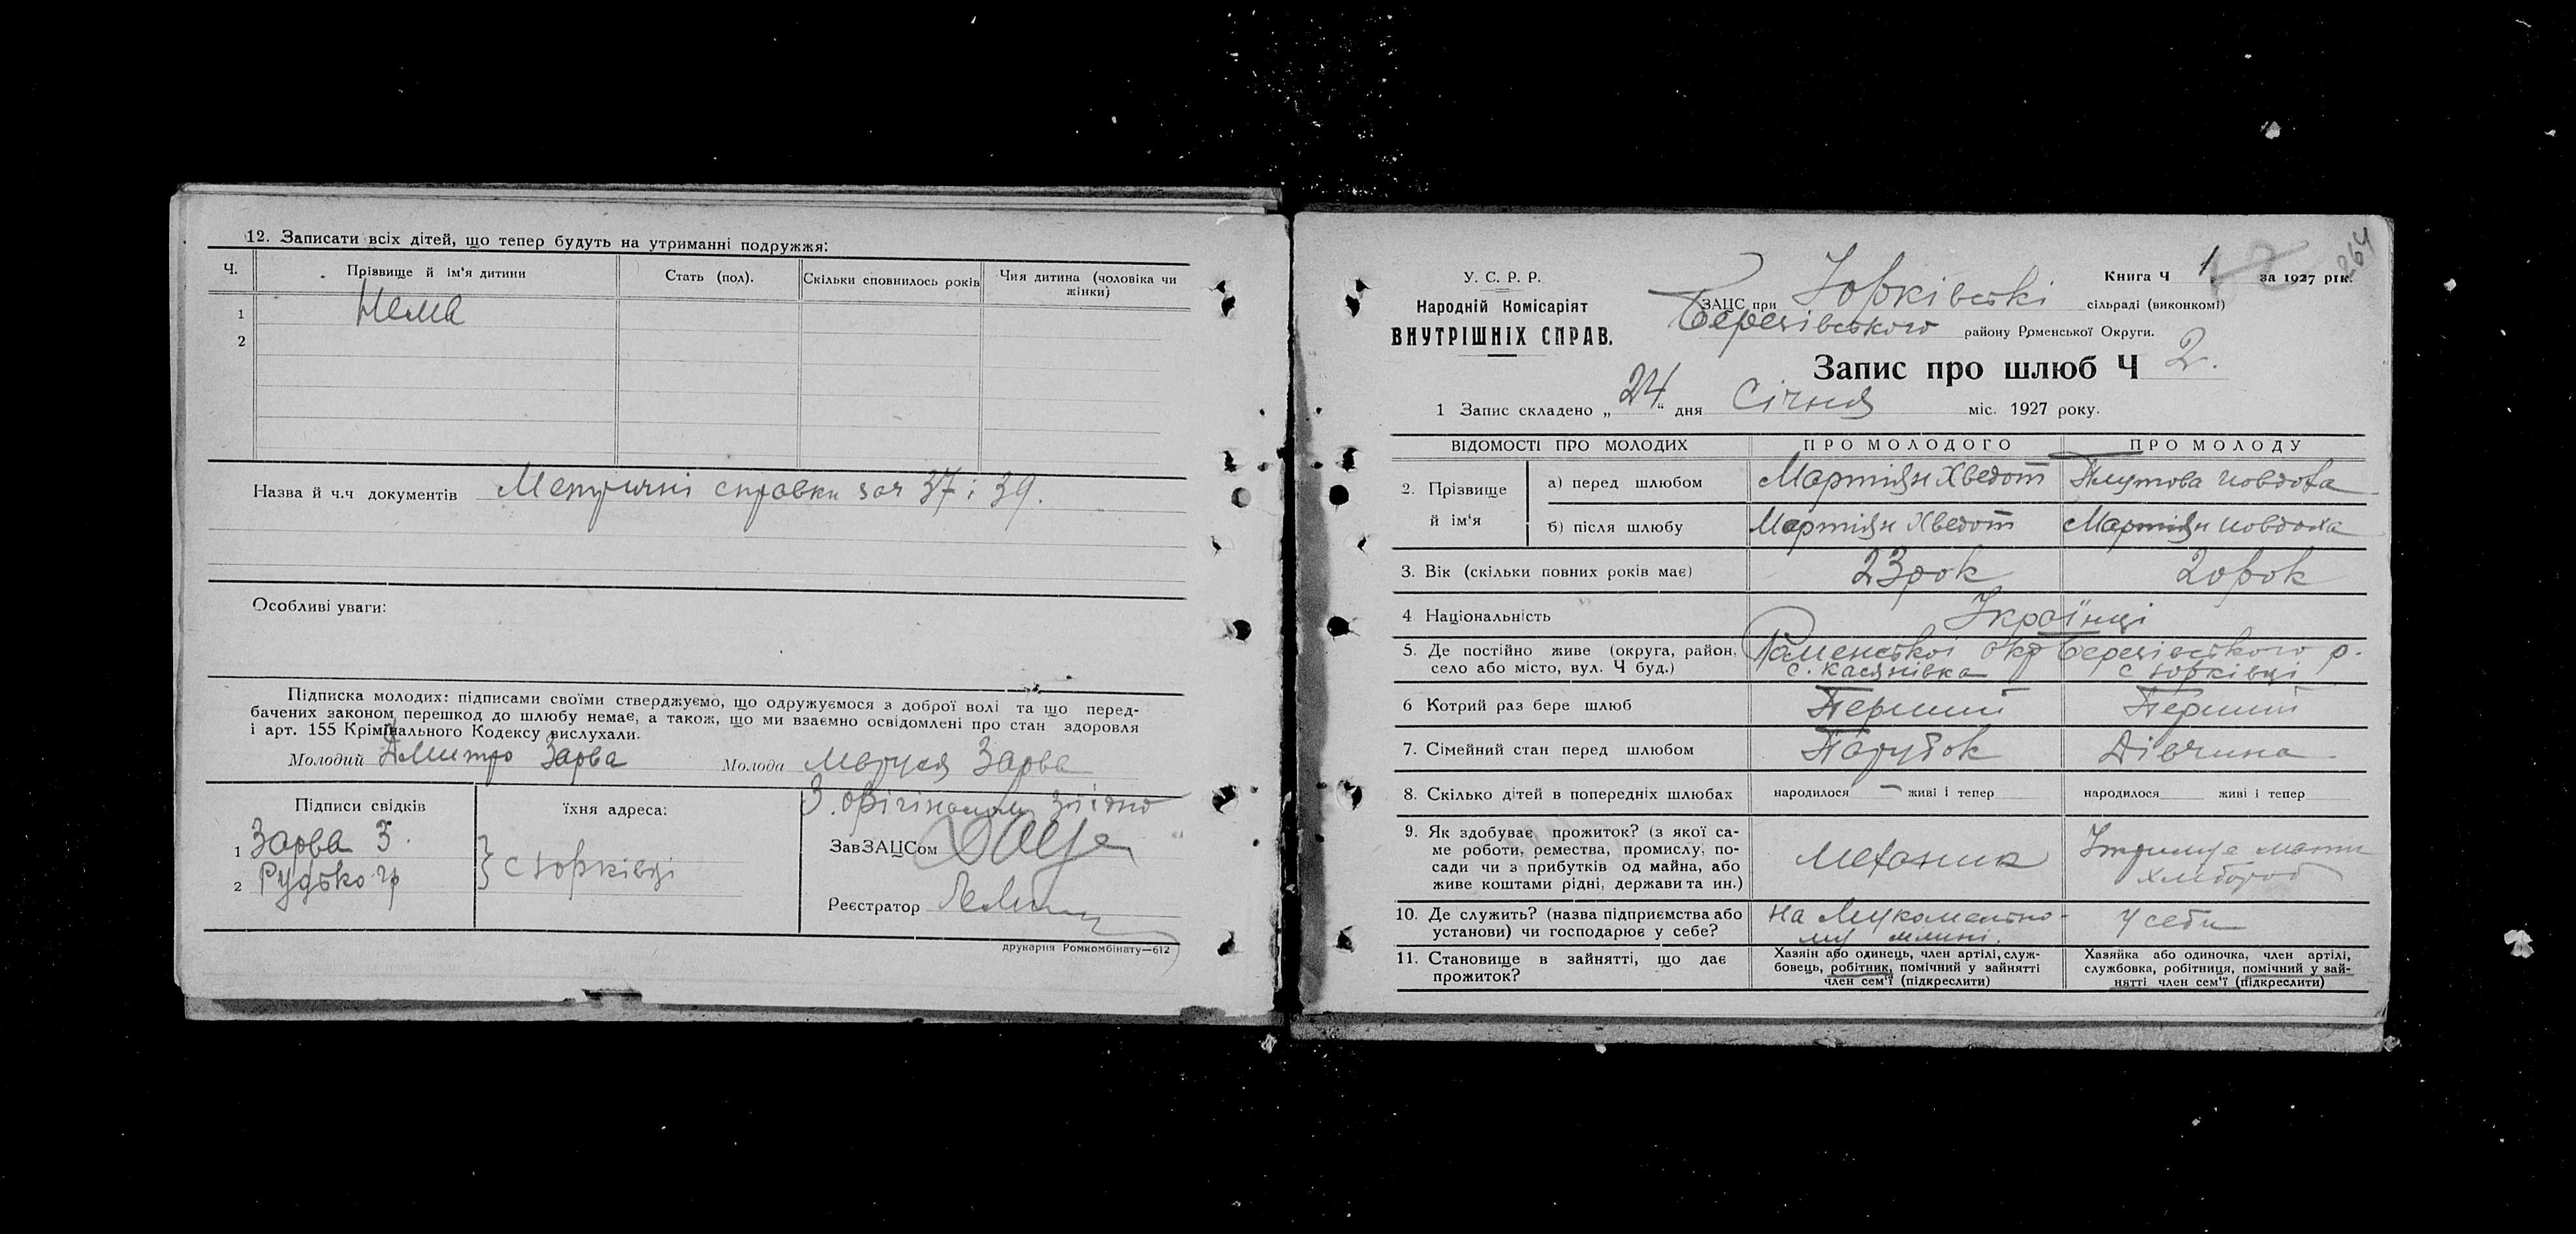 12. Записати всіх дітей, що тепер будуть на утриманні подружжя:
Ч. Прізвище й ім'я дитини Стать (пол). Скільки сповнилось років Чия дитина (чоловіка чи жінки)
1 Нема
2
Назва й ч.ч документів Метричні справки за ч 37 і 39.
Особливі уваги:
Підписка молодих: підписами своїми стверджуємо, що одружуємося з доброї волі та що перед-
бачених законом перешкод до шлюбу немає, а також, що ми взаємно освідомлені про стан здоровля
і арт. 155 Крімінального Кодексу вислухали.
Молодий Дмитро Зарва Молода Маруся Зарва
Підписи свідків їхня адреса: З оригіналом згідно
1 Зарва З.
2 Рудько Гр
} с Юрківці
ЗавЗАЦСом
Реєстратор
друкарня Ромкомбінату—612
264
У. С. Р. Р.
Народній Комісаріят
ВНУТРІШНІХ СПРАВ.
Книга Ч 1 за 1927 рік.
ЗАЦС при Юрківські сільраді (виконкомі)
Березівського району Роменської Округи.
Запис про шлюб Ч 2.
1 Запис складено „24" дня Січня міс. 1927 року.
ВІДОМОСТІ ПРО МОЛОДИХ ПРО МОЛОДОГО ПРО МОЛОДУ
2. Прізвище й ім'я а) перед шлюбом Мартіян Хведот Плутова Човдоха
б) після шлюбу Мартіян Хведот Мартіян Човдоха
3. Вік (скільки повних років має) 23 рок 20 рок
4 Національність Українці
5. Де постійно живе (округа, район, село або місто, вул. Ч буд.) Роменської окр Березівського р.
с. Касянівка с Юрківці
6 Котрий раз бере шлюб Перший Перший
7. Сімейний стан перед шлюбом Парубок Дівчина
8. Скілько дітей в попередніх шлюбах народилося — живі і тепер народилося живі і тепер
9. Як здобуває прожиток? (з якої са-
ме роботи, ремества, промислу, по-
сади чи з прибутків од майна, або
живе коштами рідні, держави та ин.)
Механик
Утримує мати
хлібороб
10. Де служить? (назва підприємства або
установи) чи господарює у себе?
На Мукомельно-
му млині.
У себи
11. Становище в зайнятті, що дає
прожиток?
Хазяїн або одинець, член артілі, служ-
бовець, робітник, помічний у зайнятті
член сем'ї (підкреслити)
Хазяйка або одиночка, член артілі,
службовка, робітниця, помічний у зай-
нятті член сем'ї (підкреслити)